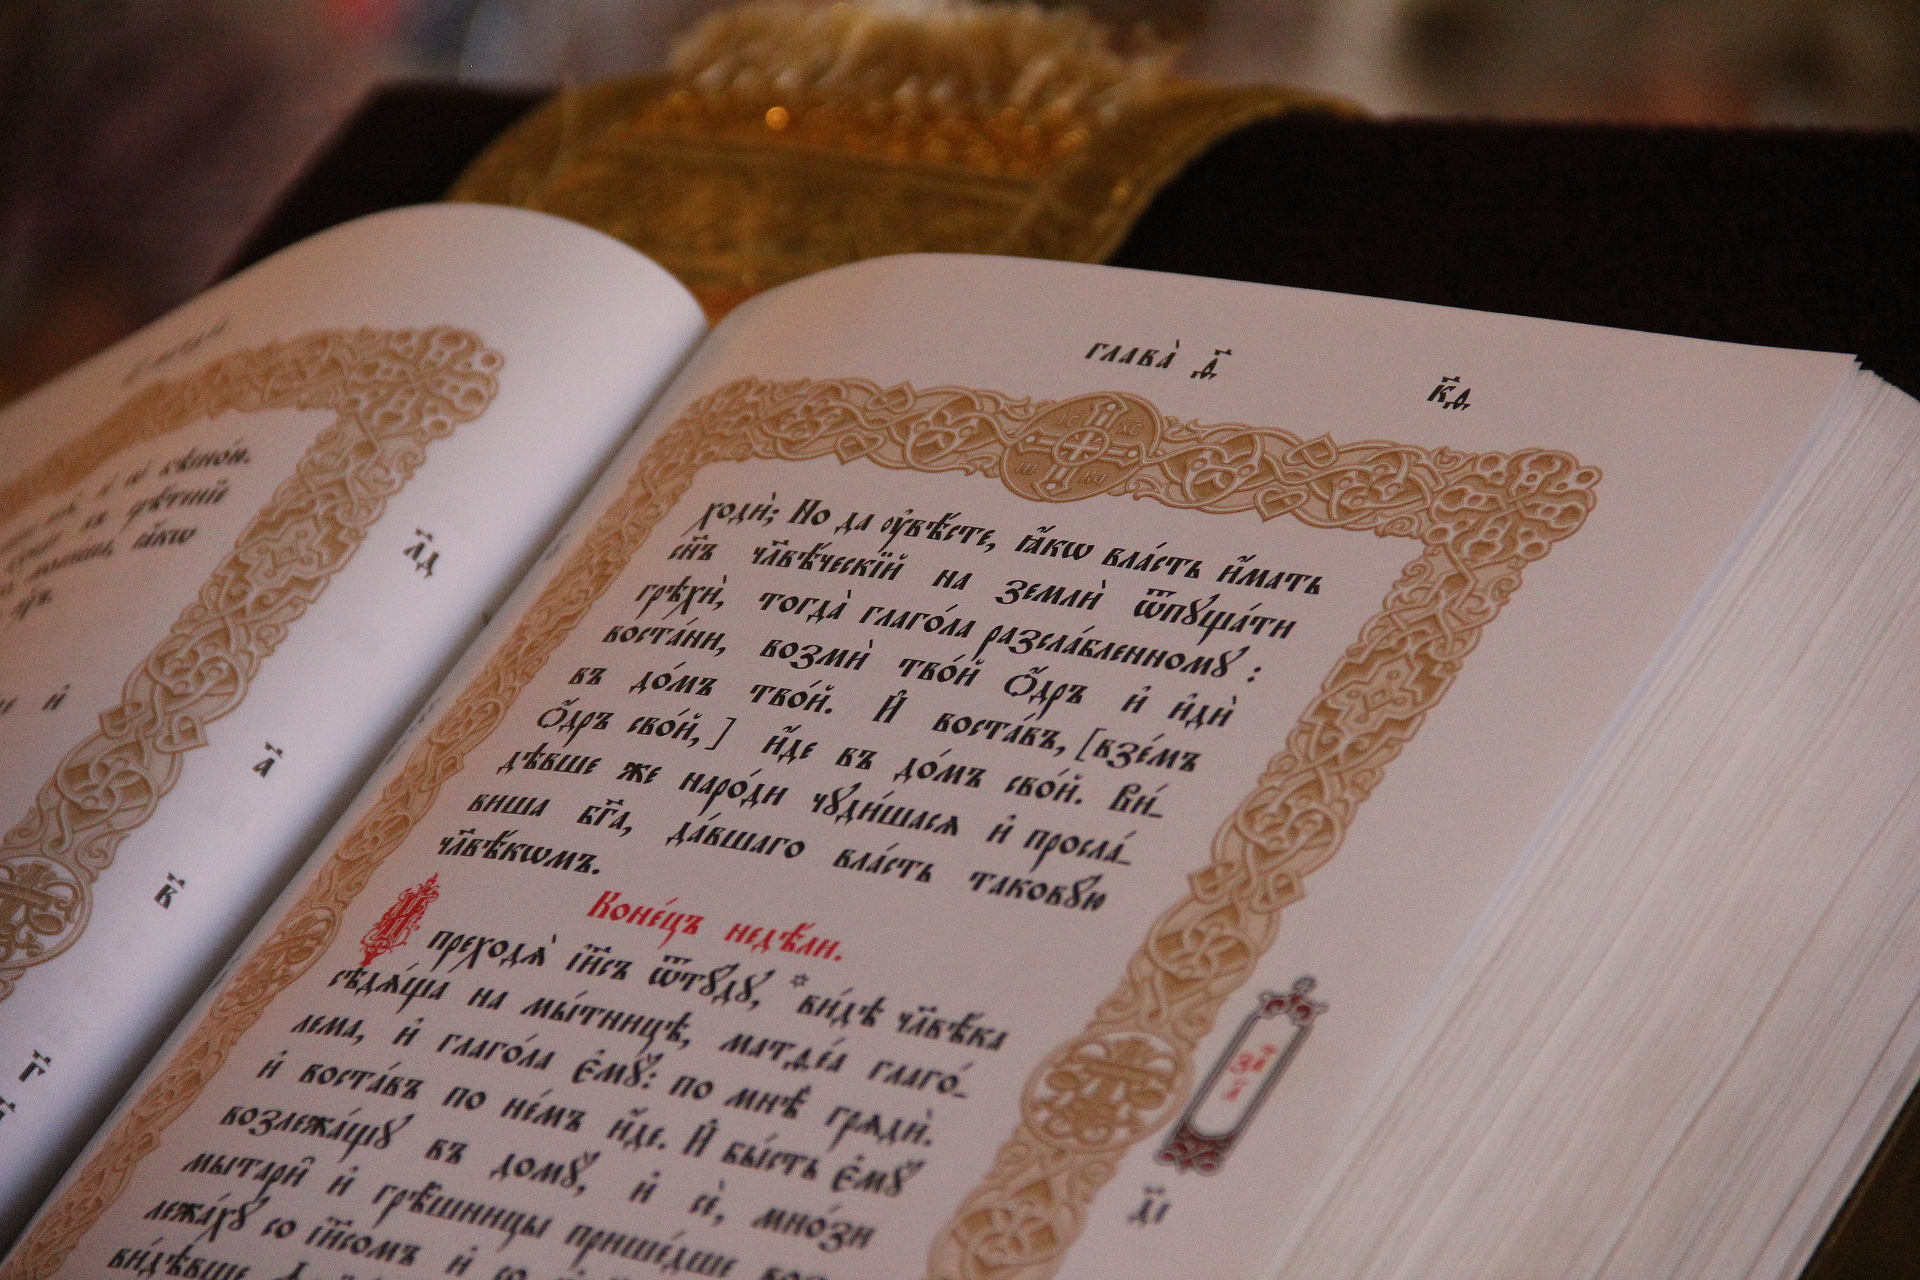 и҆
л҃д
а҃
в҃
г҃
глава̀ д҃
к҃д
ходѝ; Но да ᲂу҆вѣ́сте, ꙗ҆́кѡ вла́сть и҆́мать
сн҃ъ чл҃вѣ́ческїй на землѝ ѿпꙋща́ти
грѣхѝ, тогда̀ глаго́ла разсла́бленномꙋ :
воста́ни, возмѝ тво́й Ѻ҆́дръ и҆ и҆дѝ
въ до́мъ тво́й. И҆ воста́въ, [взе́мъ
Ѻ҆́дръ сво́й,] и҆́де въ до́мъ сво́й. Ви́-
дѣвше же наро́ди чꙋди́шасѧ и҆ просла́-
виша бг҃а, да́вшаго вла́сть таковꙋ́ю
чл҃вѣ́кѡмъ.
Коне́цъ недѣ́ли.
И҆ преходѧ̀ і҆и҃съ ѿтꙋ́дꙋ, *ви́дѣ чл҃вѣ́ка
сѣдѧ́ща на мы́тницѣ, матѳе́а глаго́-
лема, и҆ глаго́ла є҆мꙋ̀: по мнѣ̀ грѧдѝ.
и҆ воста́въ по не́мъ и҆́де. И҆ бы́сть є҆мꙋ̀
возлежа́щꙋ въ домꙋ̀, и҆ сѐ, мно́зи
мытарѝ и҆ грѣ̑шницы прише́дше воз
лежа́хꙋ со і҆и҃сомъ и҆ со
ви́дѣвше
за҃
л҃
д҃і